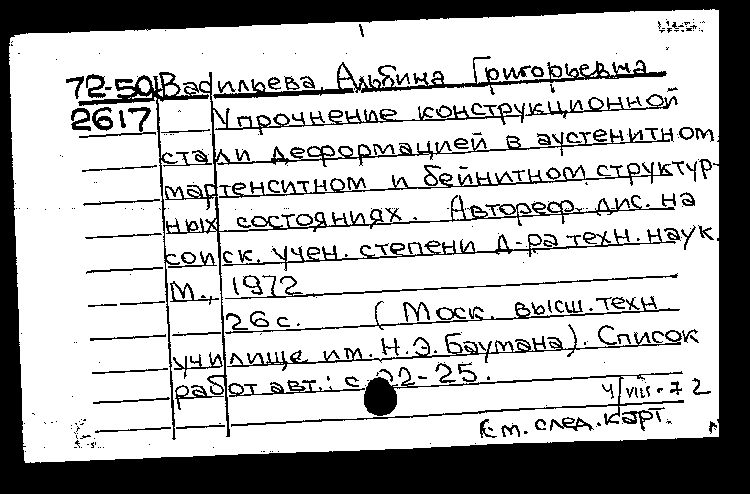 72-50 Васильева, Альбина Григорьевна
2617 Упрочнение конструкционной
стали деформацией в аустенитном,
мартенситном и бейнитном структур-
ных состояниях. Автореф. дис. на
соиск. учен. степени д-ра техн. наук.
М., 1972
26 с. (Моск. высш. техн
училище им. Н.Э. Баумана). Список
работ авт.: с. 22-25.
4/VIII-72
См. след. карт.